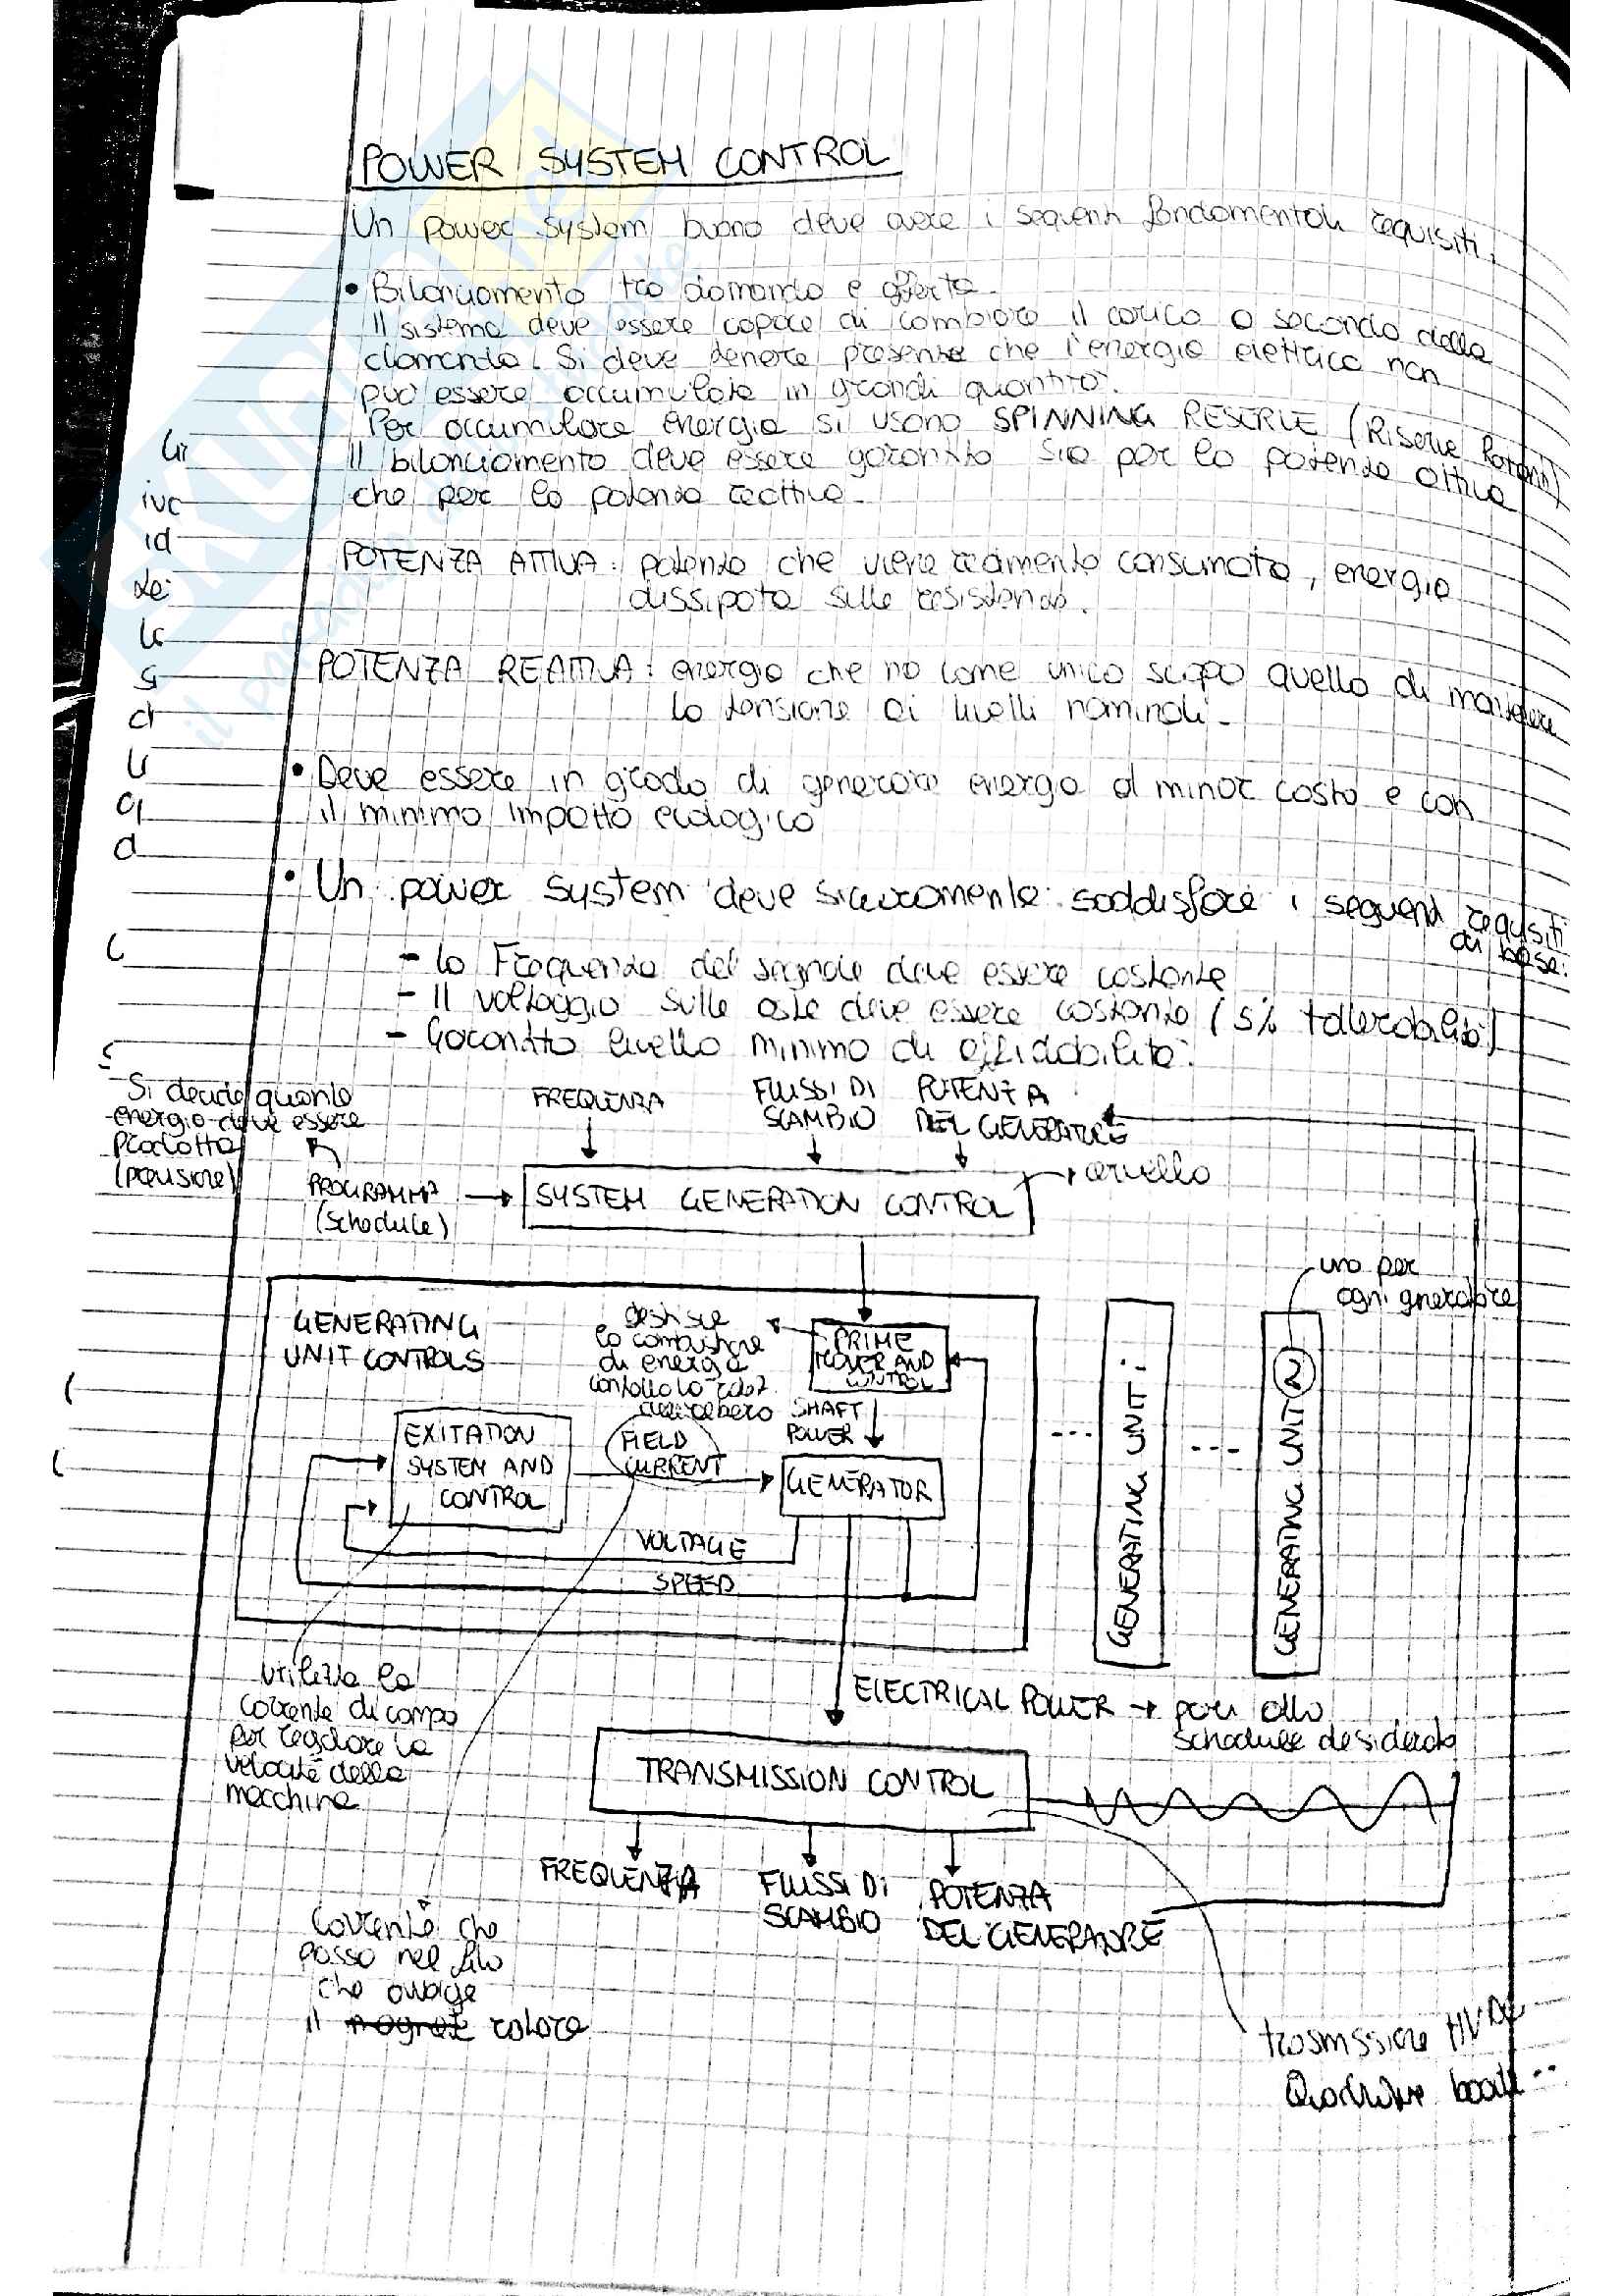 POWER SYSTEM CONTROL
Un power system buono deve avere i seguenti fondamentali requisiti.
• Bilanciamento tra domanda e offerta.
Il sistema deve essere capace di cambiare il carico a seconda della
domanda. Si deve tenere presente che l'energia elettrica non
può essere accumulata in grandi quantità.
Per accumulare energia si usano SPINNING RESERVE (Riserve Rotanti)
Il bilanciamento deve essere garantito sia per la potenza attiva
che per la potenza reattiva.
POTENZA ATTIVA: potenza che viene realmente consumata, energia
dissipata sulle resistenze.
POTENZA REATTIVA: energia che ha come unico scopo quello di mantenere
la tensione ai livelli nominali.
• Deve essere in grado di generare energia al minor costo e con
il minimo impatto ecologico
• Un power system deve sicuramente soddisfare i seguenti requisiti
di base:
- la Frequenza del segnale deve essere costante
- Il voltaggio sulle aste deve essere costante (5% tollerabilità)
- Garantito livello minimo di affidabilità.
Si decide quanta
energia deve essere
prodotta
(previsione)
FREQUENZA
FLUSSI DI
SCAMBIO
POTENZA
DEL GENERATORE
PROGRAMMA
(schedule)
SYSTEM GENERATION CONTROL
cervello
uno per
ogni generatore
GENERATING
UNIT CONTROLS
gestisce
la combustione
di energia
controlla la
dell'albero
PRIME
MOVER AND
CONTROL
SHAFT
POWER
EXITATION
SYSTEM AND
CONTROL
FIELD
CURRENT
GENERATOR
VOLTAGE
SPEED
...
GENERATING UNIT i
...
GENERATING UNIT 2
utilizza la
corrente di campo
per regolare la
velocità della
macchina
ELECTRICAL POWER → pari allo
schedule desiderato
TRANSMISSION CONTROL
FREQUENZA
FLUSSI DI
SCAMBIO
POTENZA
DEL GENERATORE
Corrente che
passa nel filo
che avvolge
il magnete rotore
trasmissione HVDC